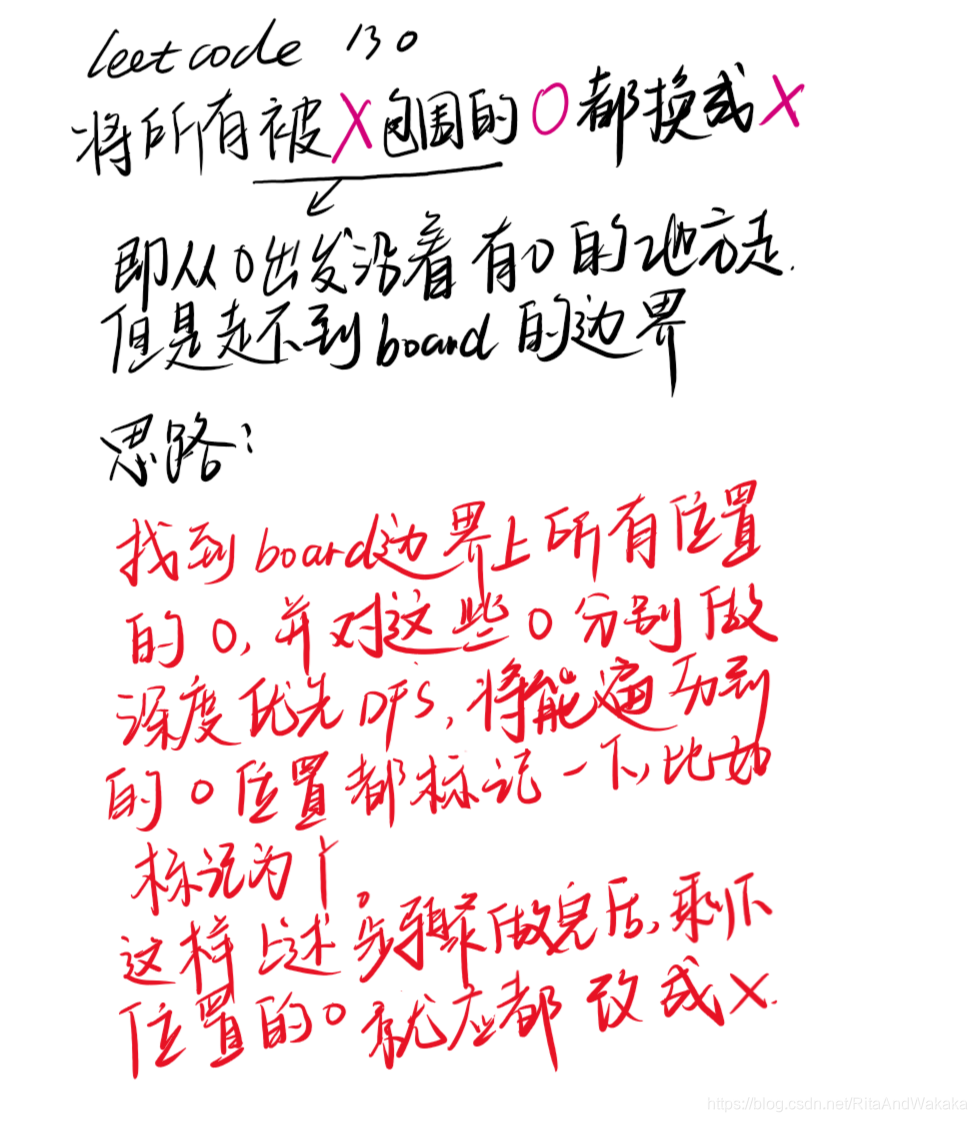 leetcode 130
将所有被X包围的O都换成X
即从O出发沿着有O的地方走.
但是走不到board的边界
思路:
找到board边界上所有位置
的O,并对这些O分别做
深度优先DFS,将能遍历到
的O位置都标记一下,比如
标记为1。
这样上述步骤做完后,剩下
位置的O就应都改成X.
https://blog.csdn.net/RitaAndWakaka